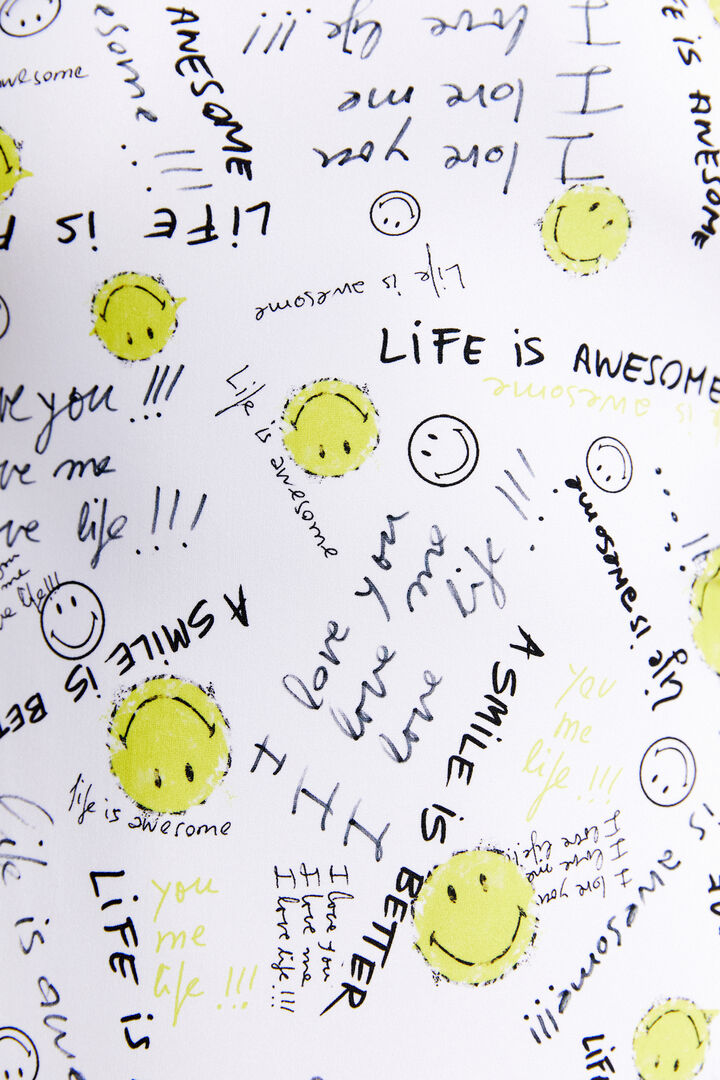 I love life !!!
I love me
I love you
ANESOME
esome !!!
awesome
LiFE iS
FE iS ANESOME
Life is awesome
LiFE iS AWESOME
is awesome
ve you !!!
ve me
ve life !!!
me
e life!!!
Life is awesome
I love you
I love me
I love life !!!
Life is awesome
A SMiLE iS BET
A SMiLE iS BETTER
you
me
life !!!
life is awesome
I love you
I love me
I love life!!
Life is awe
LiFE iS
you
me
life !!!
I love you
I love me
I love life!!!
is awesome!!!
LiFE